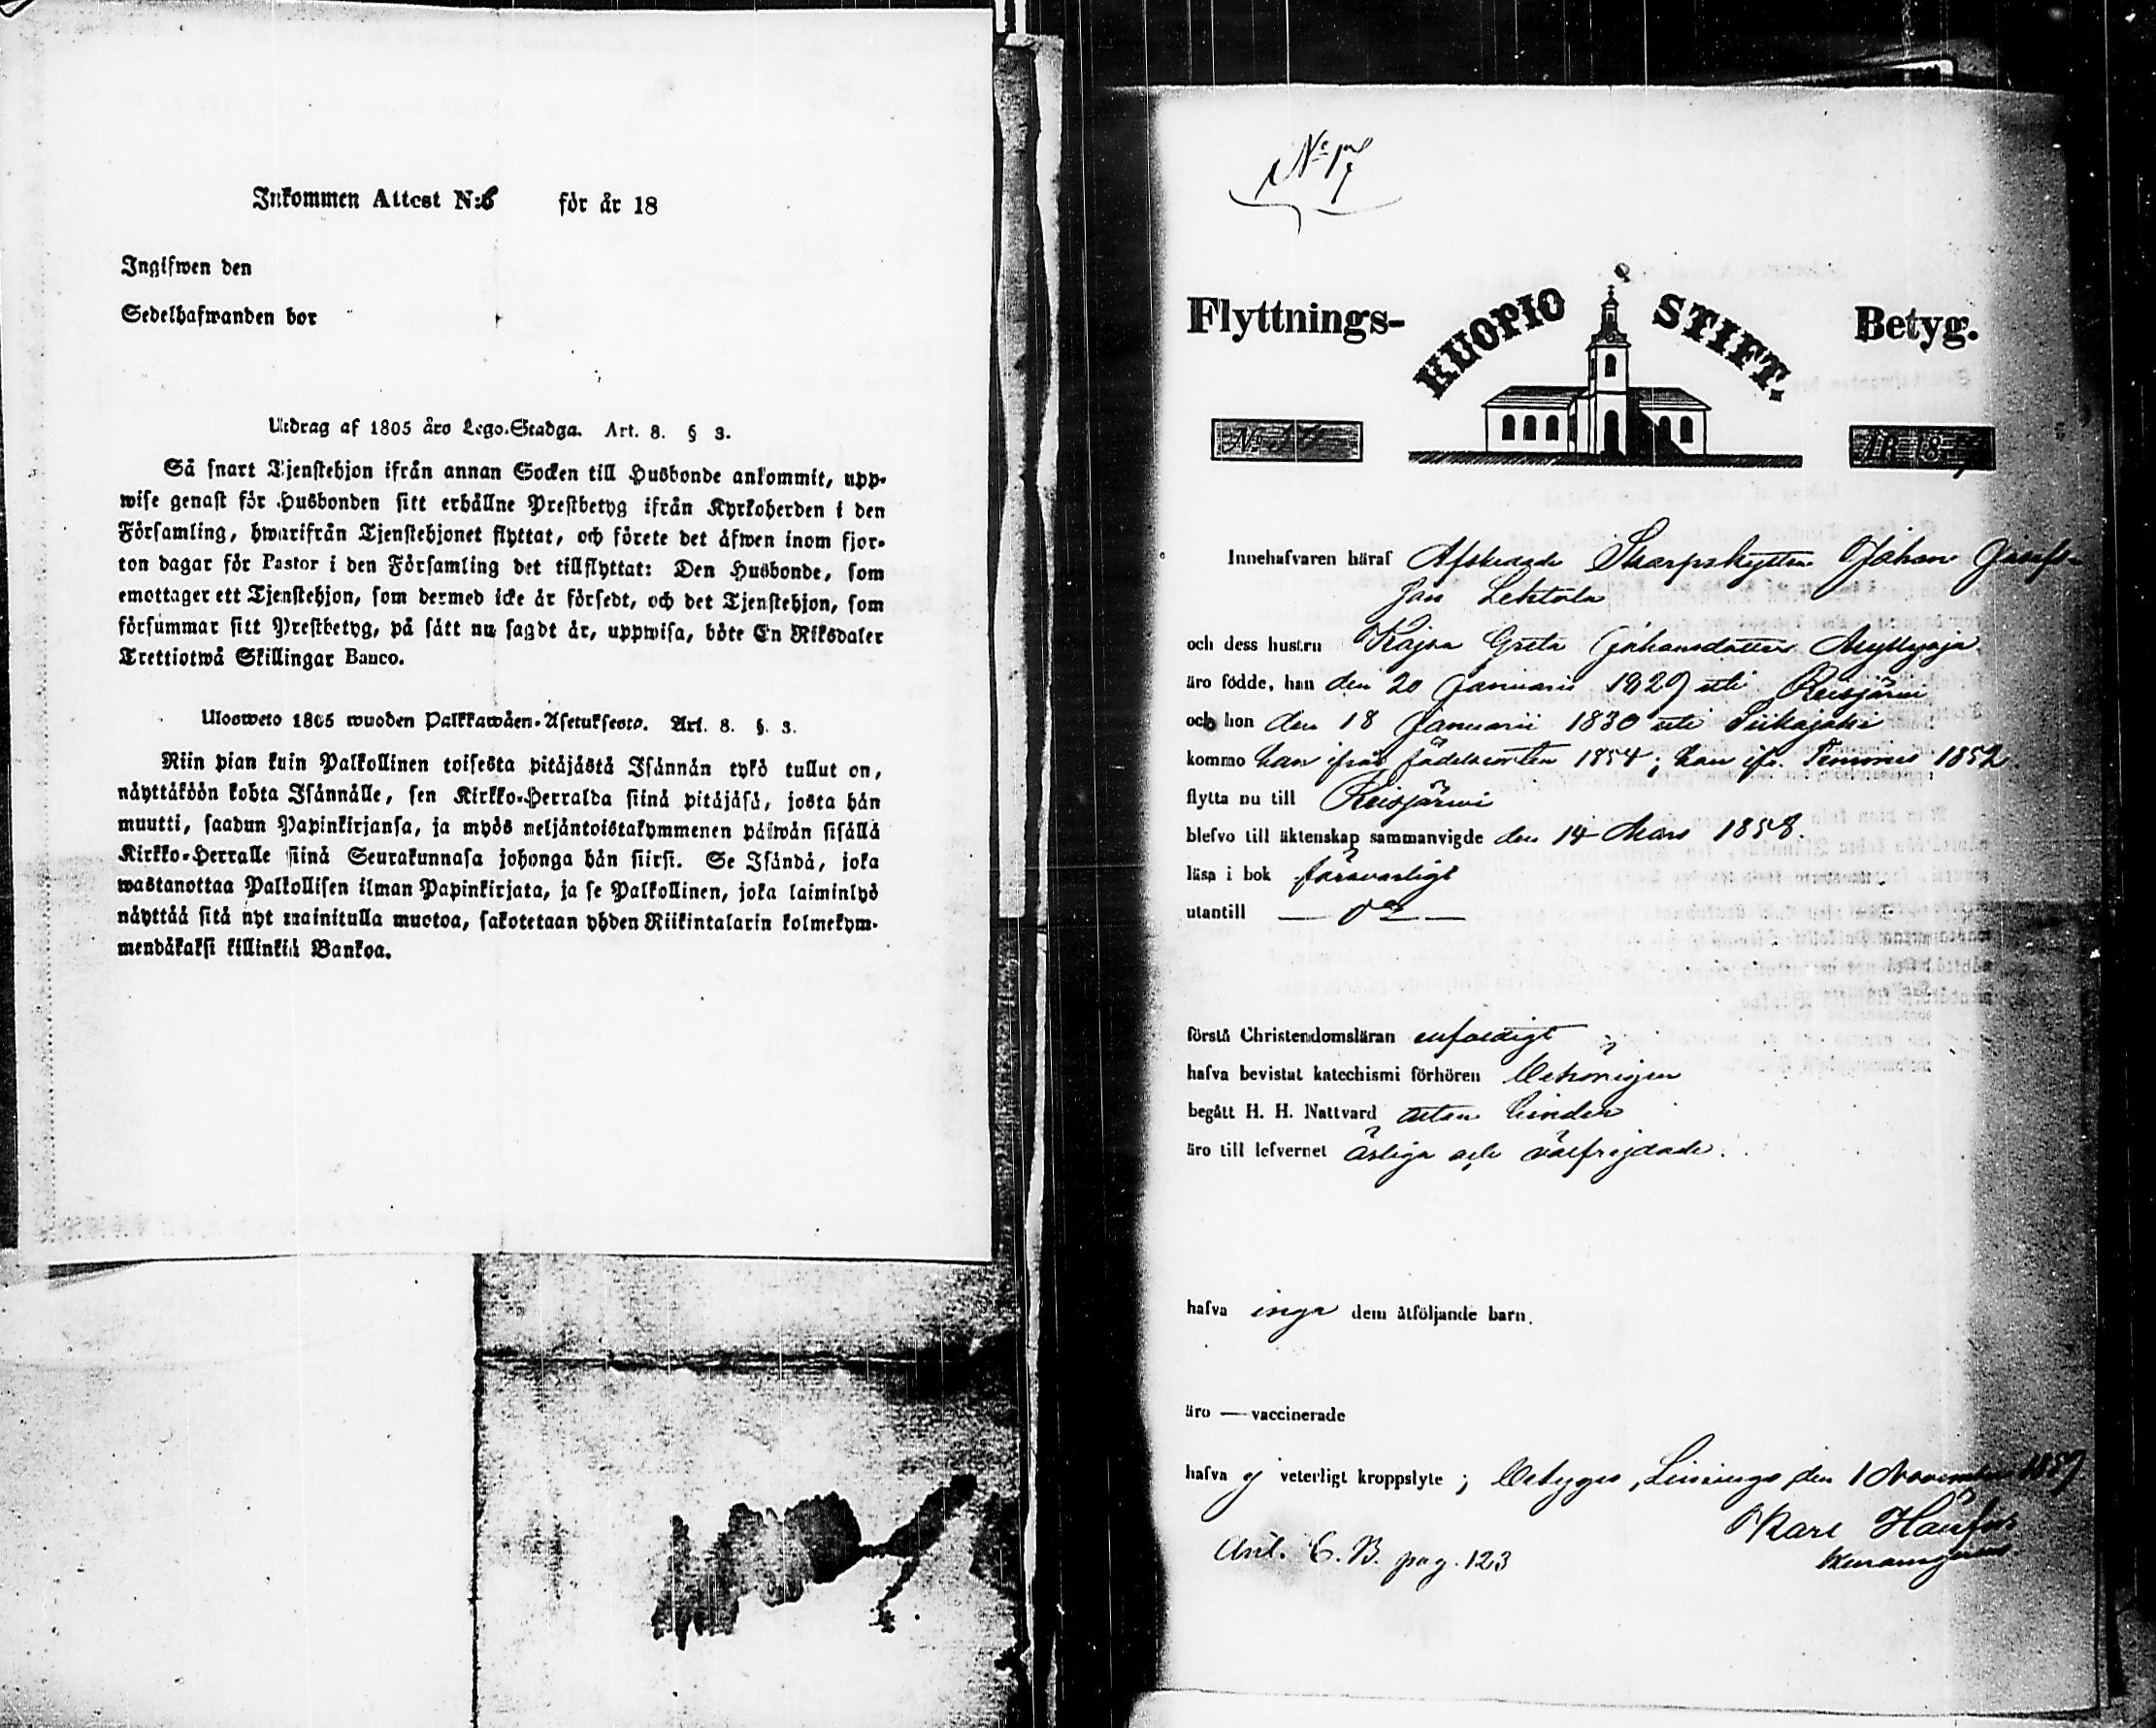 Inkommen Attest N:6 för år 18
Ingifwen den
Sedelhafwanden bor
Utdrag af 1805 års Lego-Stadga. Art. 8. § 3.
Så snart Tjenstehjon ifrån annan Socken till Husbonde ankommit, upp-
wise genast för Husbonden sitt erhållne Prestbetyg ifrån Kyrkoherden i den
Församling, hwarifrån Tjenstehjonet flyttat, och förete det äfwen inom fjor-
ton dagar för Pastor i den Församling det tillflyttat: Den Husbonde, som
emottager ett Tjenstehjon, som dermed icke är försedt, och det Tjenstehjon, som
försummar sitt Prestbetyg, på sätt nu sagdt är, uppwisa, böte En Riksdaler
Trettiotwå Skillingar Banco.
Ulosweto 1805 wuoden Palkkawäen-Asetuksesta. Art. 8. §. 3.
Niin pian kuin Palkollinen toisesta pitäjästä Isännän tykö tullut on,
näyttäköön kohta Isännälle, sen Kirkko-Herralda siinä pitäjäsä, josta hän
muutti, saadun Papinkirjansa, ja myös neljäntoistakymmenen päiwän sisällä
Kirkko-Herralle siinä Seurakunnasa johonga hän siirsi. Se Isändä, joka
wastanottaa Palkollisen ilman Papinkirjata, ja se Palkollinen, joka laiminlyö
näyttää sitä nyt mainitulla muotoa, sakotetaan yhden Riikintalarin kolmekym-
mendäkaksi killinkiä Bankoa.
Flyttnings- KUOPIO STIFT. Betyg.
ÅR 18
Innehafvaren häraf Afskedade Skarpskytten Johan
Jan Lehtola
och dess hustru Kajsa Greta Johansdotter Myllyoja
äro födde, han den 20 Januarii 1829 uti Reisjärvi
och hon den 18 Januarii 1830 uti Siikajoki
kommo han ifrån födelseorten 1854; hon ifr. 1852
flytta nu till Reisjärvi
blefvo till äktenskap sammanvigde den 14 Mars 1858.
läsa i bok försvarligt
utantill — do —
förstå Christendomsläran enfaldigt
hafva bevistat katechismi förhören behörigen
begått H. H. Nattvard utan hinder
äro till lefvernet ärliga och välfrejdade.
hafva inga dem åtföljande barn.
äro — vaccinerade
hafva ej veterligt kroppslyte; betygar, Liminge den 1 November
Karl
Anl. C. B. pag. 123